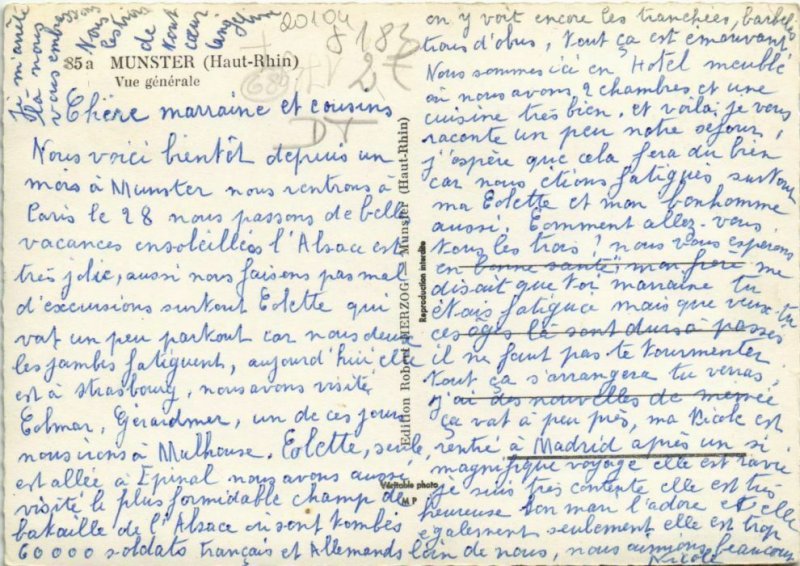 35a MUNSTER (Haut-Rhin)
Vue générale
20104
Chère marraine et cousins
Nous voici bientôt depuis un
mois à Munster nous rentrons à
Paris le 28 nous passons de belles
vacances ensoleillées l'Alsace est
très jolie, aussi nous faisons pas mal
d'excursions surtout Colette qui
vat un peu partout car nous deux
les jambes fatiguent, aujourd'hui elle
est à Strasbourg, nous avons visité
Colmar, Gérardmer, un de ces jours
nous irons à Mulhouse. Colette, seule,
est allée à Epinal nous avons aussi
visité le plus formidable champ de
bataille de l'Alsace où sont tombés
60000 soldats français et Allemands
Edition Robert HERZOG - Munster (Haut-Rhin)
Reproduction interdite
Véritable photo
M P
on y voit encore les tranchées, barbelés
trous d'obus, tout ça est émouvant
Nous sommes ici en Hotel meublé
où nous avons 2 chambres et une
cuisine très bien. et voilà je vous
raconte un peu notre séjour,
j'espère que cela fera du bien
car nous étions fatigués surtout
ma Colette et mon bonhomme
aussi. Comment allez-vous
tous les trois? nous vous espérons
en bonne santé, mon frère me
disait que toi marraine tu
étais fatiguée mais que veux-tu
ces âges là sont durs à passés
il ne faut pas te tourmenter
tout ça s'arrangera tu verras,
j'ai des nouvelles de mémée
ça vat à peu près, ma Nicole est
rentré à Madrid après un si
magnifique voyage elle est ravie
je suis très contente elle est très
heureuse son mari l'adore et elle
également seulement elle est trop
loin de nous, nous aimions beaucoup
Nicole
Je m'arrête
là nous
vous embrassons
tous
les trois
de
tout
cœur